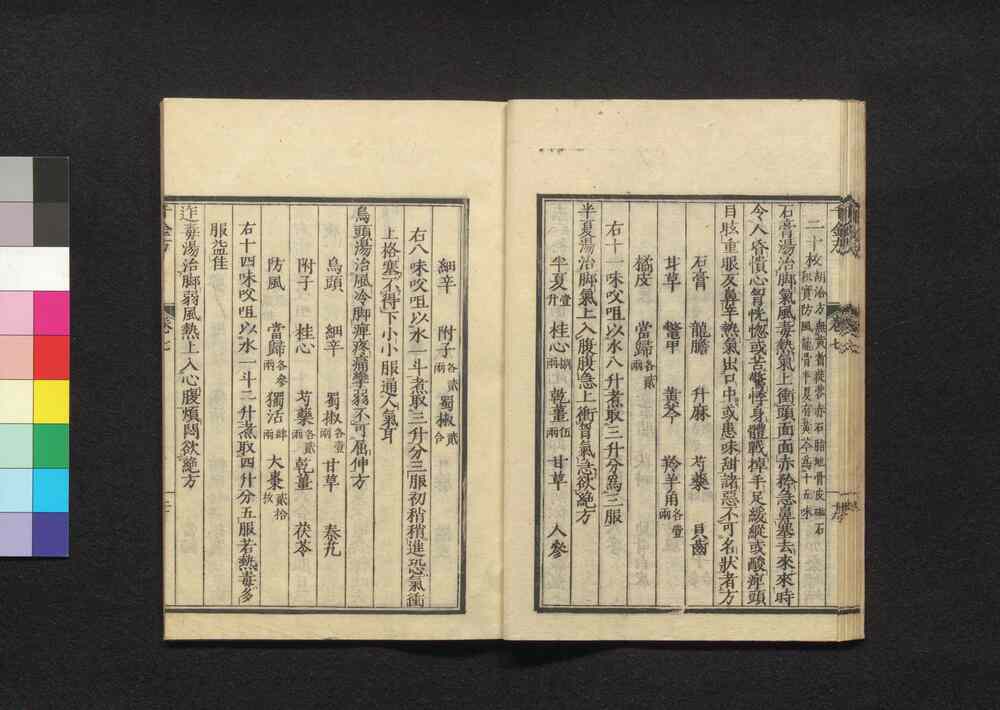 二十枚胡洽方無茯苓有赤石脂地骨皮磁石
秋實防風龍骨半夏有黃芩爲十五味
石膏湯治脚氣風毒熱氣上衝頭面面赤矜急鼻塞去來來時
令人昏憒心胷恍惚或苦驚悸身體戰掉手足緩縱或酸痹頭
目眩重眼反鼻辛熱氣出口中或患味甜諸惡不可名狀者方
石膏 龍膽 升麻 芍藥 貝齒
甘草 鼈甲 黃芩 羚羊角各壹兩
橘皮 當歸各貳兩
右十一味㕮咀以水八升煮取三升分爲三服
半夏湯治脚氣上入腹腹急上衝胷氣急欲絕方
半夏壹升 桂心捌兩 乾薑伍兩 甘草 人參
細辛 附子各貳兩 蜀椒貳合
右八味㕮咀以水一斗煮取三升分三服初稍稍進恐氣衝
上格塞不得下小小服通人氣耳
烏頭湯治風冷脚痹疼痛攣弱不可屈伸方
烏頭 細辛 蜀椒各壹兩 甘草 秦艽
附子 桂心 芍藥各貳兩 乾薑 茯苓
防風 當歸各參兩 獨活肆兩 大棗貳拾枚
右十四味㕮咀以水一斗二升煮取四升分五服若熱毒多
服益佳
追毒湯治脚弱風熱上入心腹煩悶欲絕方
千金方 卷七